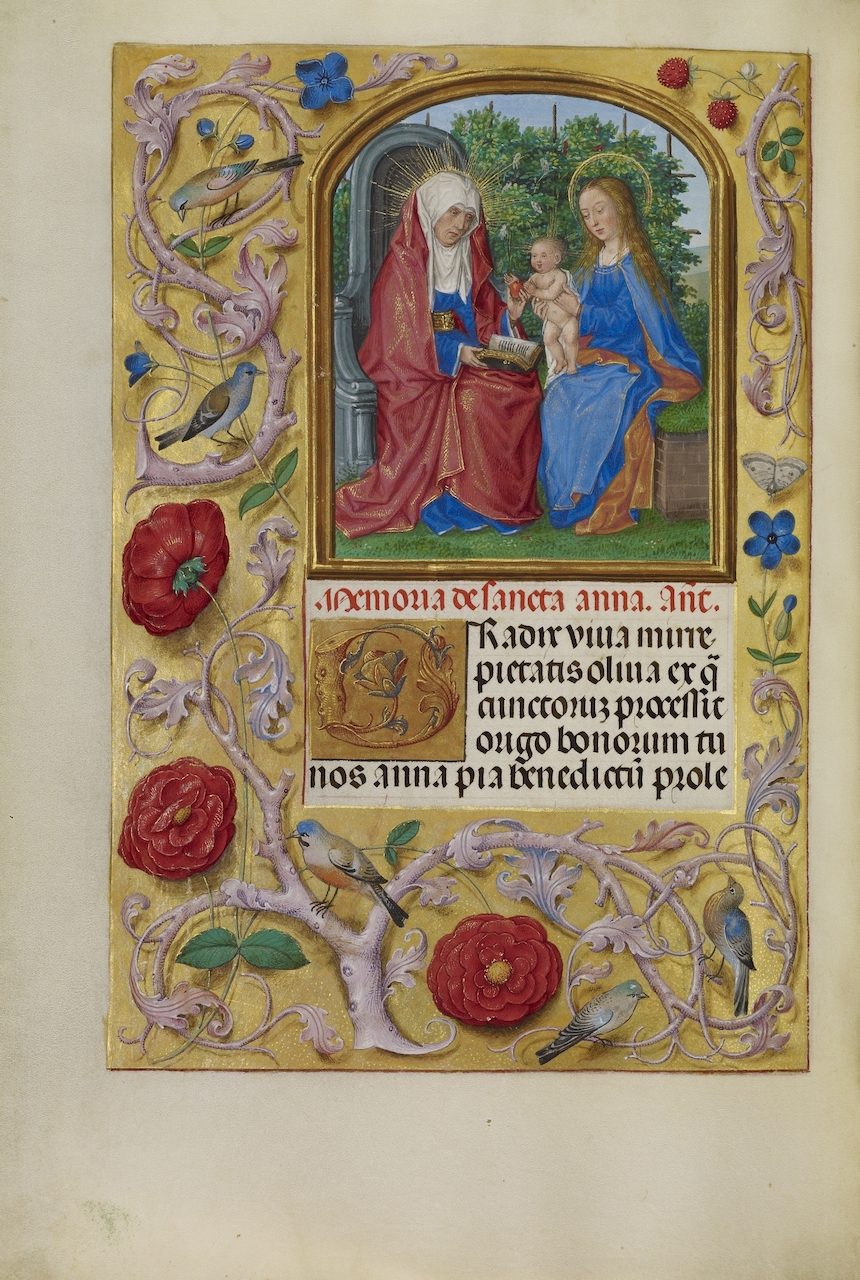 Memoria de sancta anna. Añt.
Radix viua mirre
pietatis oliua ex q̄
cunctoruꝫ processit
origo bonorum tu
nos anna pia benedictū prole